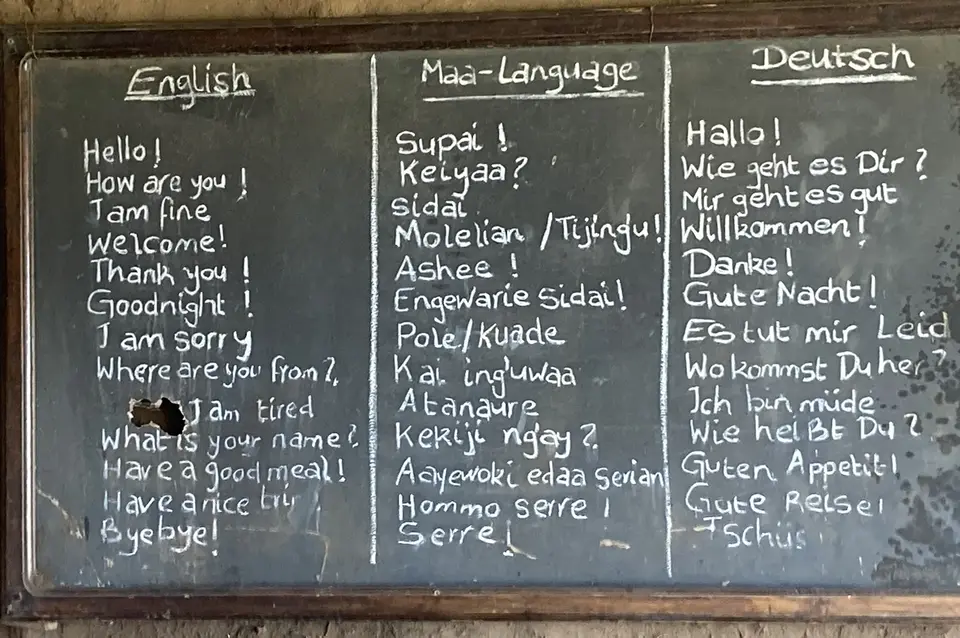 English
Hello!
How are you!
I am fine
Welcome!
Thank you!
Goodnight!
I am sorry
Where are you from?
I am tired
What is your name?
Have a good meal!
Have a nice trip
Byebye!
Maa-Language
Supai!
Keiyaa?
Sidai
Molelian /Tijingu!
Ashee!
Engewarie Sidai!
Pole/Kuade
Kai ing'uwaa
Atanaure
Kekiji ngay?
Aayewoki edaa serian
Hommo serre!
Serre!
Deutsch
Hallo!
Wie geht es Dir?
Mir geht es gut
Willkommen!
Danke!
Gute Nacht!
Es tut mir Leid
Wo kommst Du her?
Ich bin müde
Wie heißt Du?
Guten Appetit!
Gute Reise!
Tschüs